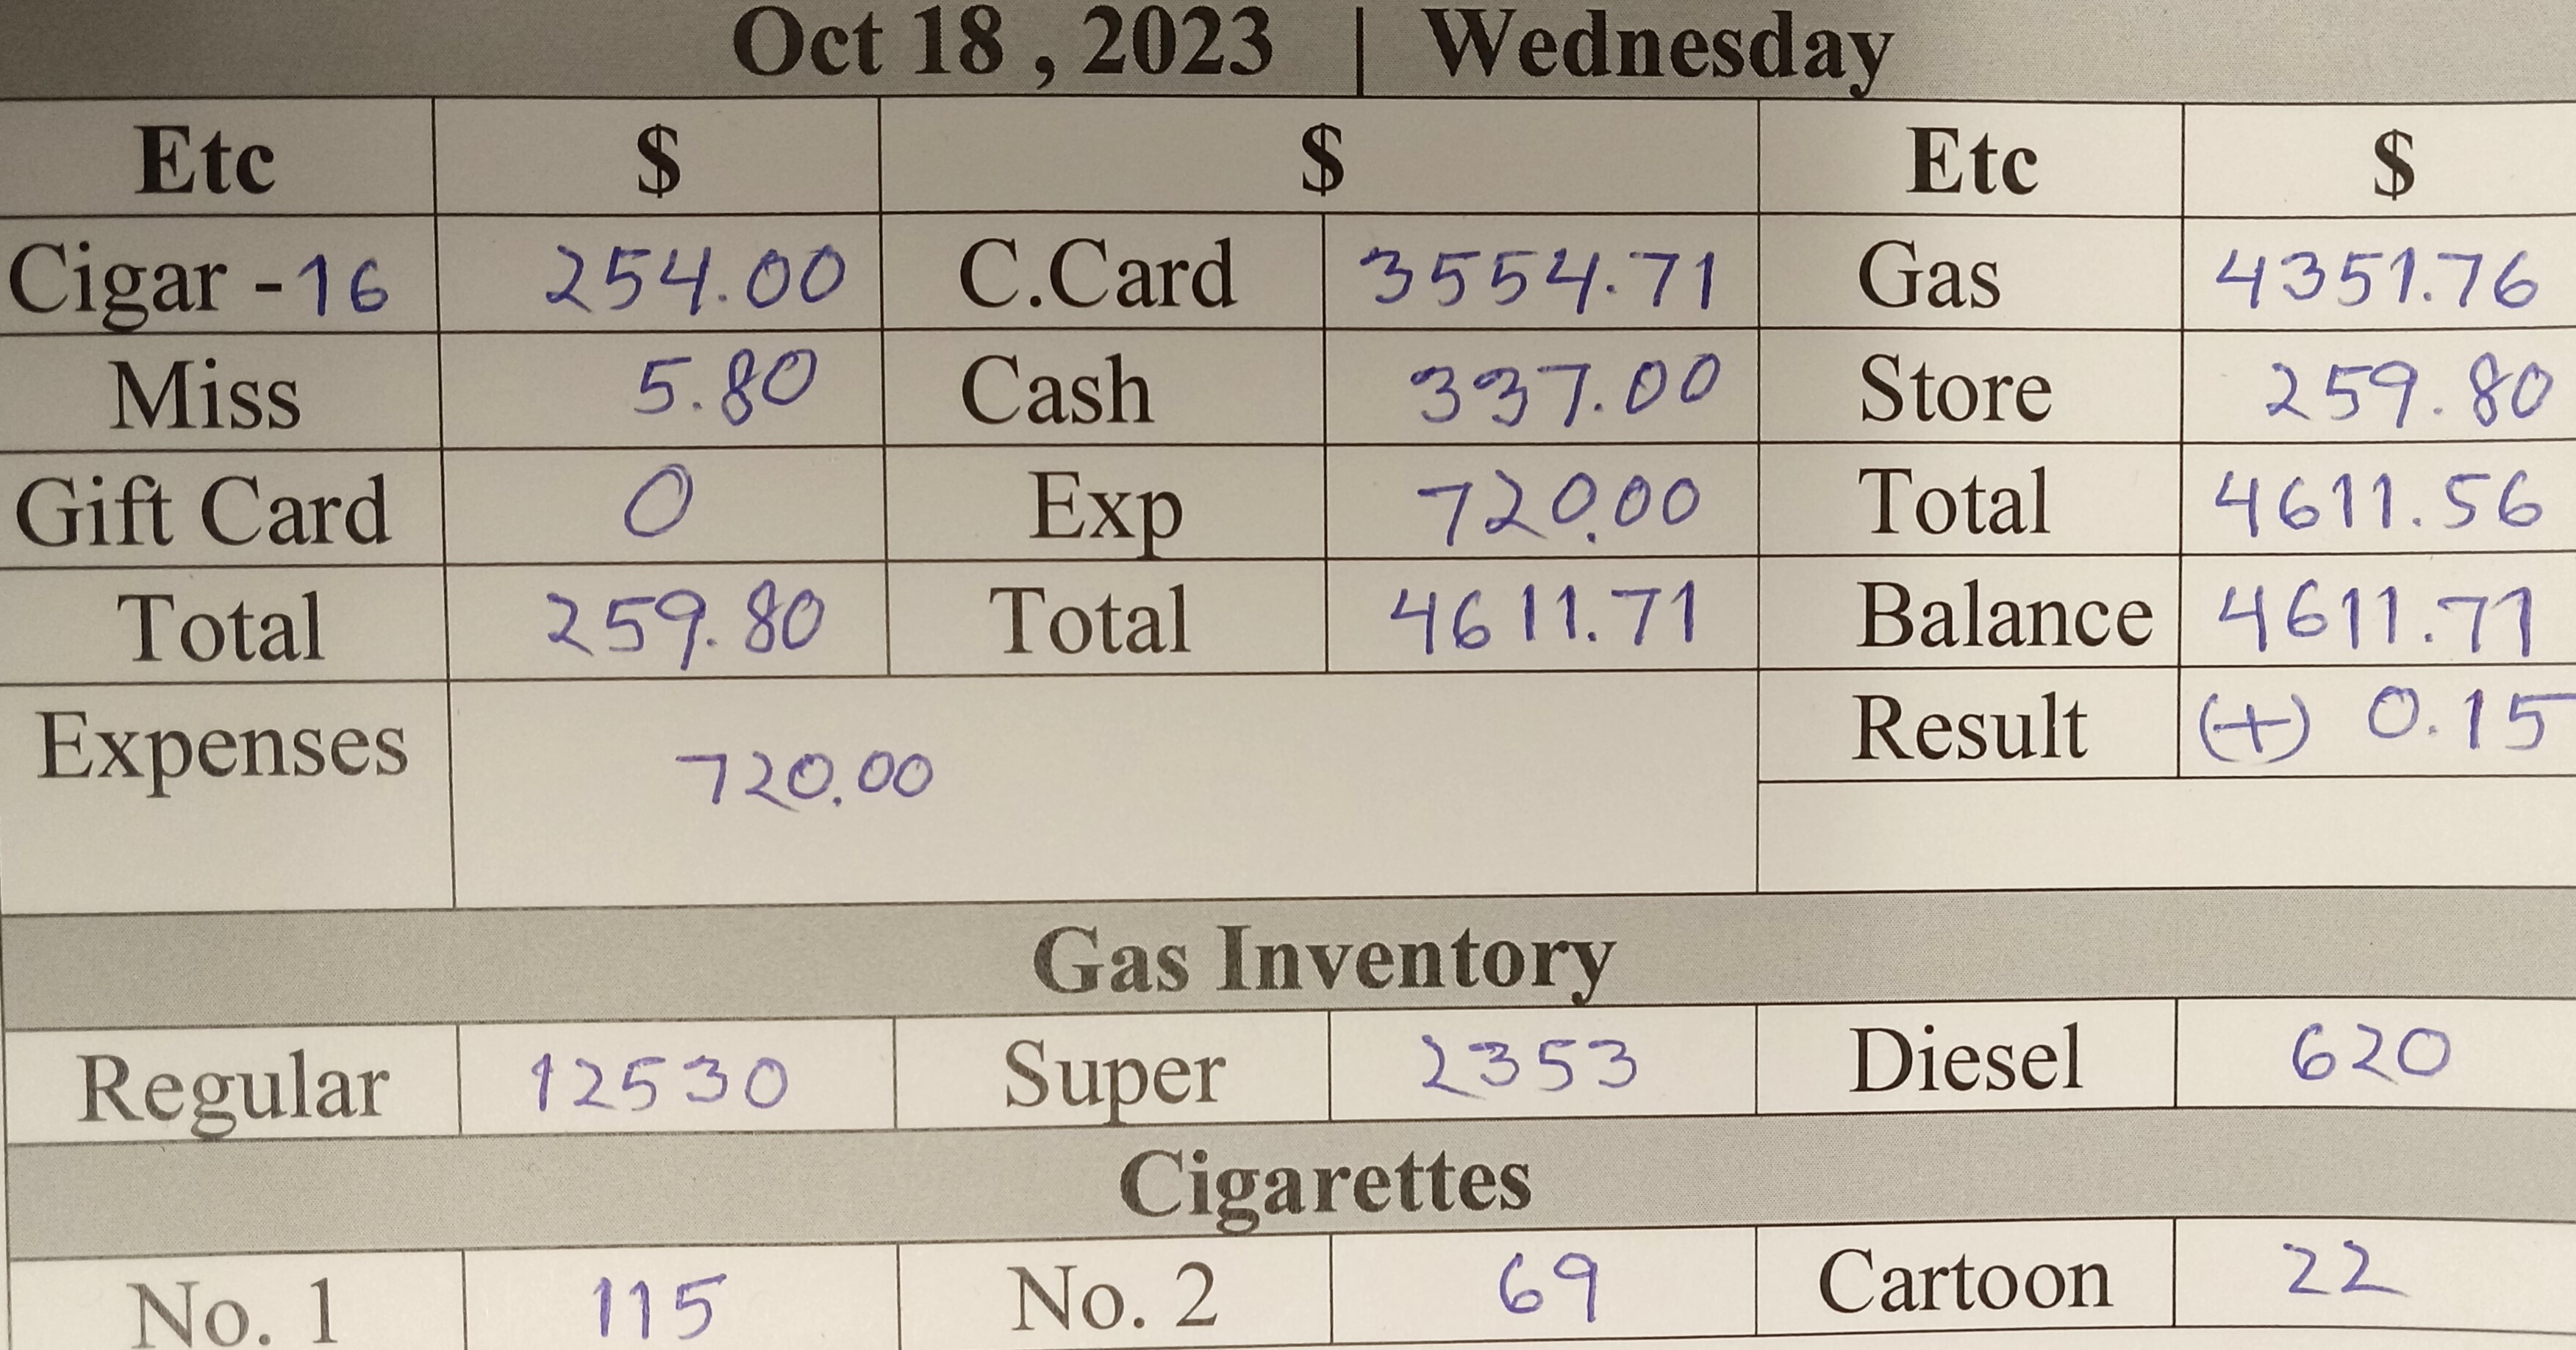 Oct 18 , 2023 | Wednesday
Etc $ $ Etc $
Cigar - 16 254.00 C.Card 3554.71 Gas 4351.76
Miss 5.80 Cash 337.00 Store 259.80
Gift Card 0 Exp 720.00 Total 4611.56
Total 259.80 Total 4611.71 Balance 4611.71
Expenses 720.00 Result (+) 0.15
Gas Inventory
Regular 12530 Super 2353 Diesel 620
Cigarettes
No. 1 115 No. 2 69 Cartoon 22